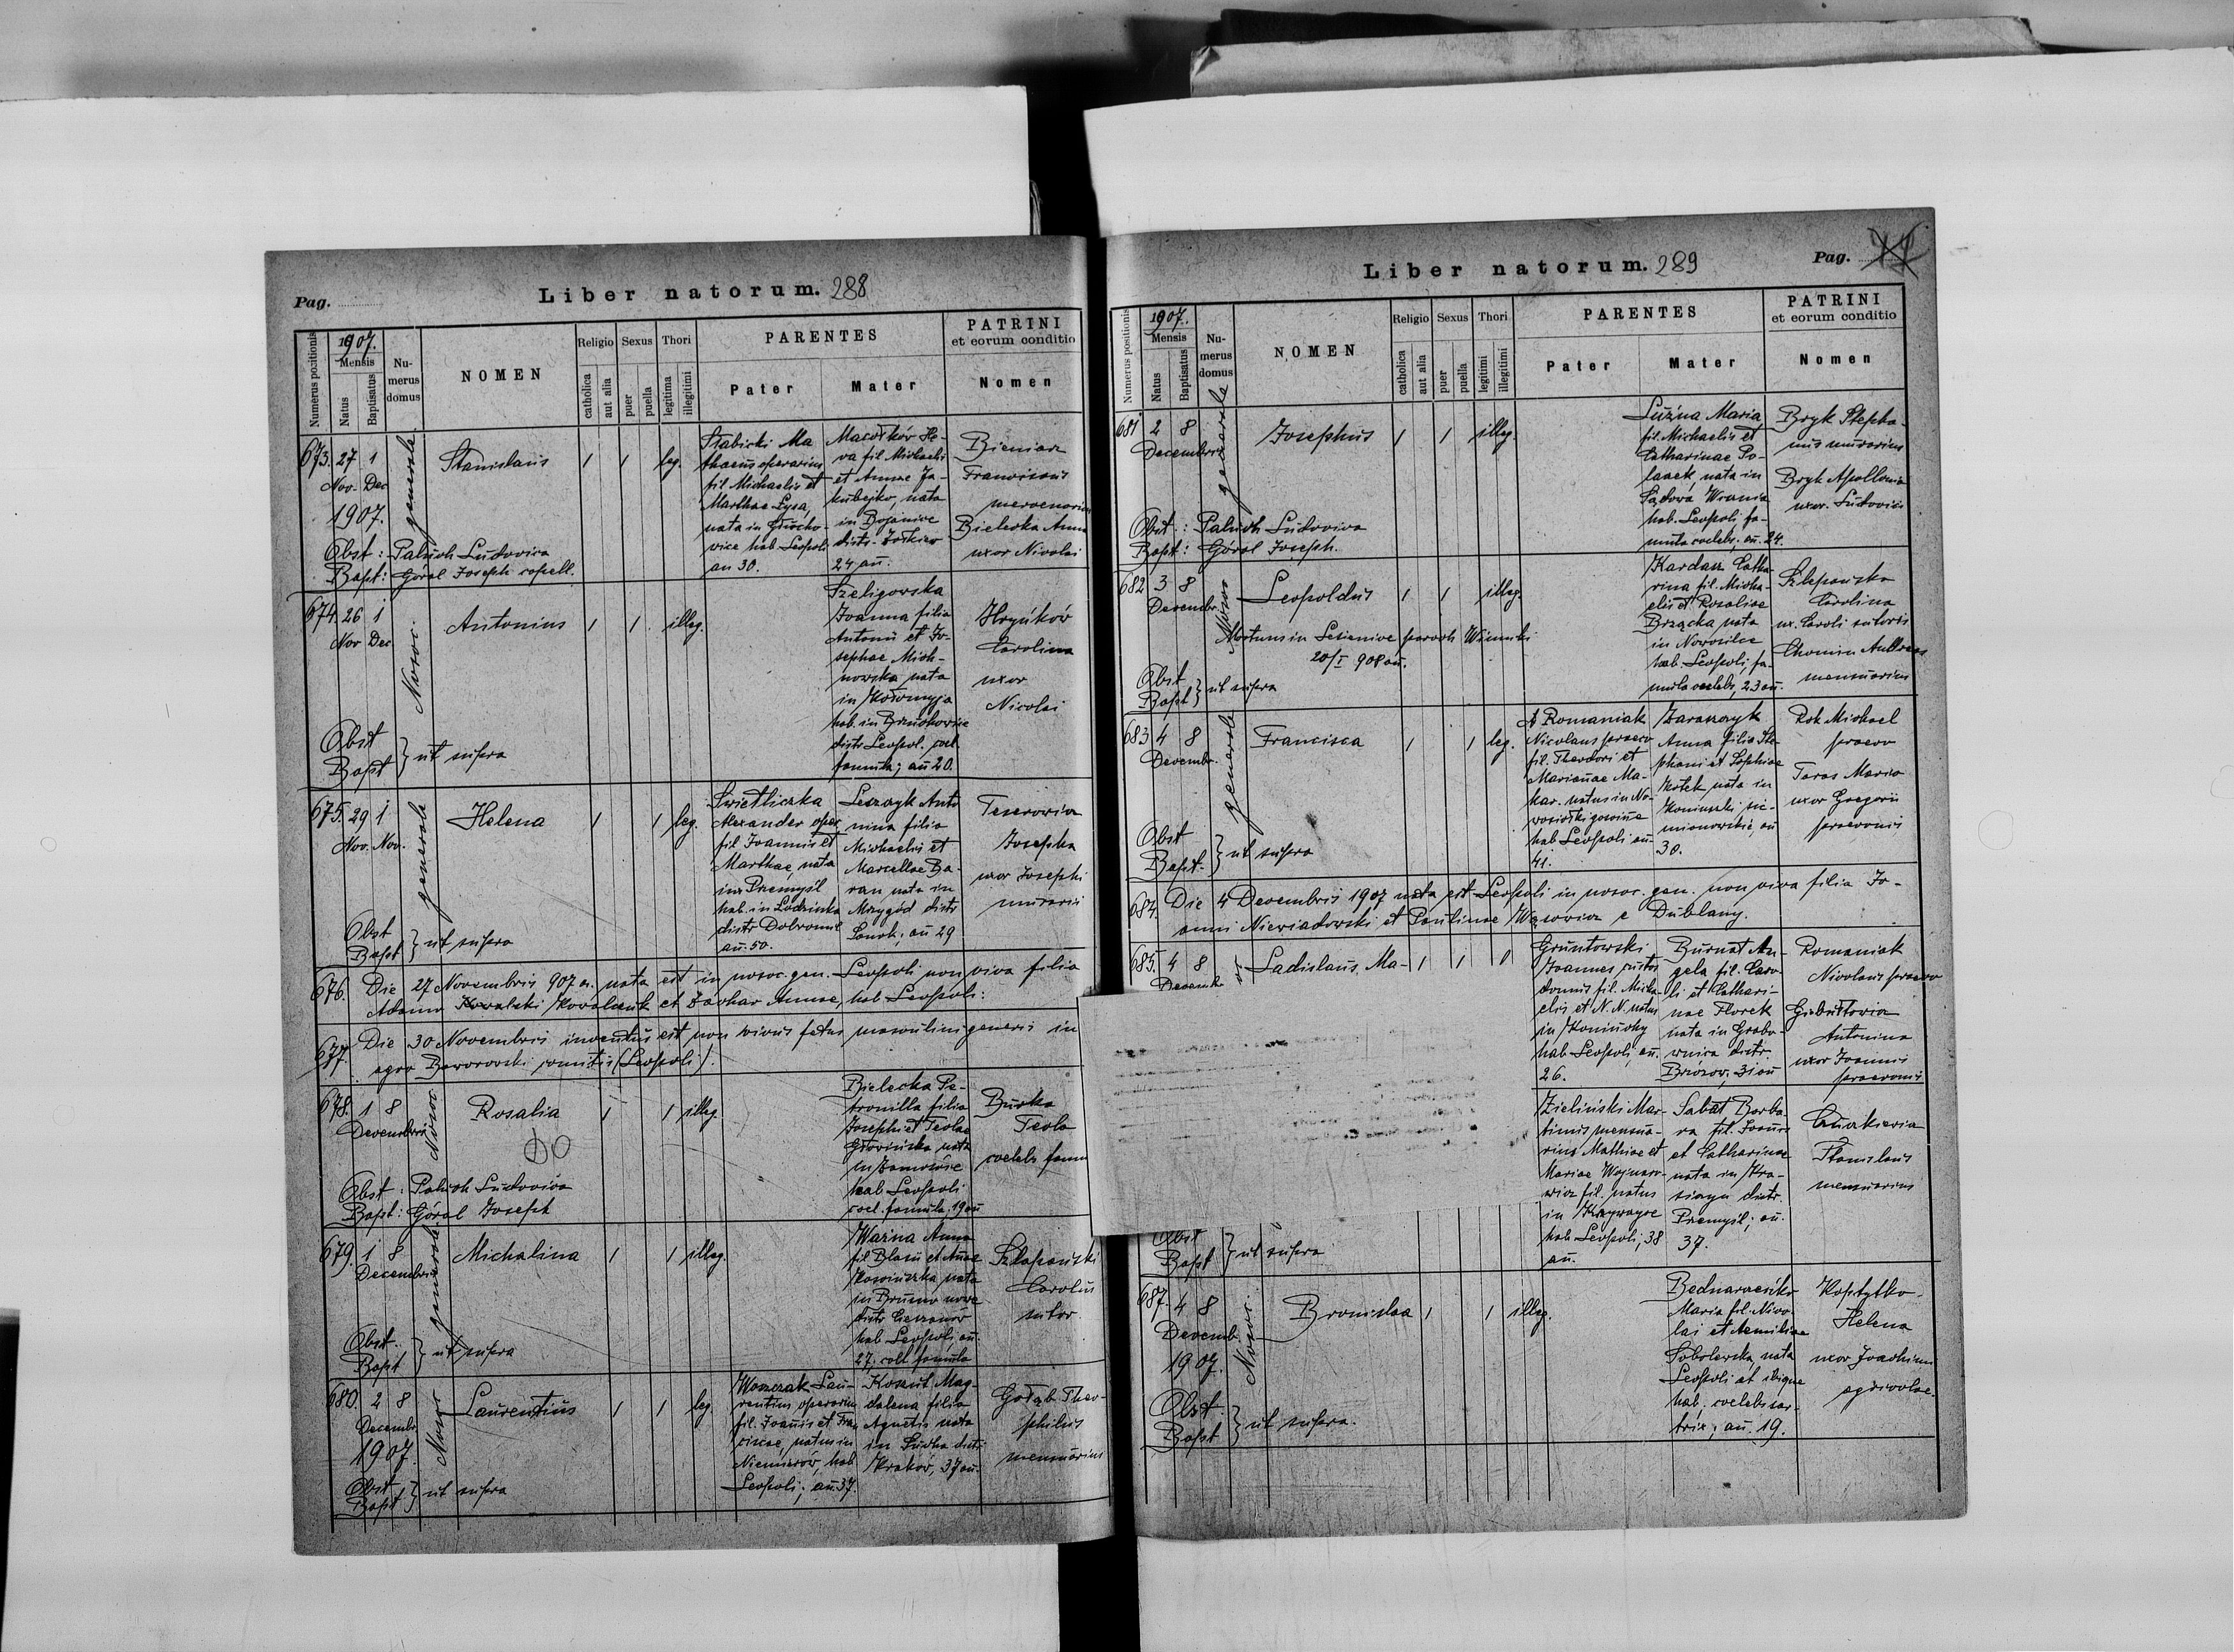 Pag.
Liber natorum. 288
Numerus positionis
1907.
Mensis
Natus
Baptisatus
Numerus domus
NOMEN
Religio
catholica
aut alia
Sexus
puer
puella
Thori
legitima
illegitimi
PARENTES
Pater
Mater
PATRINI
et eorum conditio
Nomen
673. 27 1
Nov. Dec
1907.
Nosoc. generale
Stanislaus
1 1 leg.
Stabicki Ma
thaeus operarius
fil Michaelis et
Marthae Łysa,
hab Leopoli
an 30.
va fil Michaelis
et Annae Ja-
kubejko, nata
24 an.
Bieniarz
Franciscus
mercenarius
Bielecka Anna
uxor Nicolai
Obst: Paluch Ludovica
Bapt: Góral Joseph capell.
674. 26 1
Nov Dec
Nosoc.
Antonius
1 1 illeg.
Szeligowska
Joanna filia
Antonii et Jo-
sephae Mich-
nowska nata
in Kołomyja
hab. in Brzuchowice
distr Leopol. coel.
famula; an 20.
Hryńków
Carolina
uxor
Nicolai
Obst
Bapt } ut supra
675. 29 1
Nov. Nov.
generale
Helena
1 1 leg.
Swietliczka
Alexander oper
fil Joannis et
Marthae, nata
in Przemyśl
hab. in Lodzinka
distr Dobromil
an. 50.
Leszczyk Anto
nina filia
Michaelis et
Marcellae Ba-
ran nata in
Mrzygód distr
Sanok; an 29
Teserowicz
Josepha
uxor Josephi
murarii
Obst
Bapt } ut supra
676. Die 27 Novembris 907 a. nata est in nosoc. gen. Leopoli non viva filia
Adamo Kowalski Kowalczuk et Zachar Annae, hab Leopoli:
677. Die 30 Novembris inventus est non vivus fetus masculini generis in
agro Baworowski comitis (Leopoli).
678. 1 8
Decembris
Nosoc
Rosalia
1 1 illeg.
Bielecka Pe-
tronilla filia
Josephi et Teclae
nata
hab Leopoli
coel. famula, 19 an
Burka
Tecla
coelebs famu
Obst: Paluch Ludovica
Bapt: Góral Joseph
679. 1 8
Decembris
generale
Michalina
1 1 illeg.
Ważna Anna
fil Blasii et Annae
nata
in Brusno nowe
distr Cieszanów
hab Leopoli, an.
27; coel famula
Szlapański
Carolus
sutor
Obst.
Bapt } ut supra
680. 2 8
Decembr.
1907.
Nosoc
Laurentius
1 1 leg
Woszczak Lau-
rentius operarius
fil. Joannis et Fran
ciscae, natus in
Niemirów, hab
Leopoli; an. 37.
Koszut Mag-
dalena filia
Agnetis nata
in Sucha distr
Kraków, 37 an.
Gołąb Theo-
philus
mensuarius
Obst
Bapt } ut supra
Liber natorum. 289
Pag.
Numerus positionis
1907.
Mensis
Natus
Baptisatus
Numerus domus
NOMEN
Religio
catholica
aut alia
Sexus
puer
puella
Thori
legitimi
illegitimi
PARENTES
Pater
Mater
PATRINI
et eorum conditio
Nomen
681 2 8
Decembris
generale
Josephus
1 1 illeg.
Luźna Maria
fil. Michaelis et
Catharinae Po-
laaek, nata in
Sądowa Wisznia
hab. Leopoli fa-
mula coelebs; an. 24.
Bryk Stepha-
nus murarius
Bryk Apollonia
uxor Ludovici
Obst: Paluch Ludovica
Bapt: Góral Joseph.
682 3 8
Decembr.
Nosoc
Leopoldus
1 1 illeg.
Mortuus in Lesienice paroch Winniki
20/I 908 an.
Kardasz Catha-
rina fil. Micha-
elis et Rosaliae
Brzącka nata
in Nowosilce
hab. Leopoli, fa-
mula coelebs, 23 an.
Szlapańska
Carolina
ux. Caroli sutoris
Chomin Andreas
mensuarius
Obst
Bapt } ut supra
683 4 8
Decembr.
generale
Francisca
1 1 leg.
Romaniak
Nicolaus praeco
fil. Theodori et
Mariannae Ma-
kar. natus in No-
wosiołki gościnne
hab Leopoli an
41.
Anna filia Ste-
phani et Sophiae
Kotek nata in
Koniuszki sie-
mianowskie an
30.
Rok Michael
praeco
Taras Maria
uxor Gregorii
praeconis
Obst
Bapt. } ut supra
684. Die 4 Decembris 1907 nata est Leopoli in nosoc. gen. non viva filia Jo-
anni Niewiadowski et Paulinae Wąsowicz e Dublany.
685. 4 8
Decemb.
Ladislaus. Ma-
1 1 1
Gruntowski
Joannes custos
domus fil. Micha-
elis et N. N. natus
in Koniuchy
hab Leopoli, an.
26.
Burnat An-
gela fil. Caro
li et Cathari-
nae Florek
nata in Grabo-
wnica distr.
Brzozow, 31 an
Romaniak
Nicolaus praeco
Antonina
uxor Joannis
praeconis
Zieliński Mar-
tinus mensua-
rius Mathiae et
Mariae Wojnaro-
wicz fil. natus
in Krzywcze
hab Leopoli; 38
an.
Sabat Barba-
ra fil. Joannis
et Catharinae
nata in Kra-
siczyn distr.
Przemyśl; an.
37.
Stanislaus
mensuarius
Obst
Bapt } ut supra
687. 4 8
Decemb.
1907.
Nosoc.
Bronislaa
1 1 illeg.
Maria fil. Nico-
lai et Aemiliae
Sobolewska, nata
Leopoli et ibique
hab. coelebs sar-
trix; an. 19.
Koptytko
Helena
uxor Joachimi
agricolae.
Obst
Bapt } ut supra.